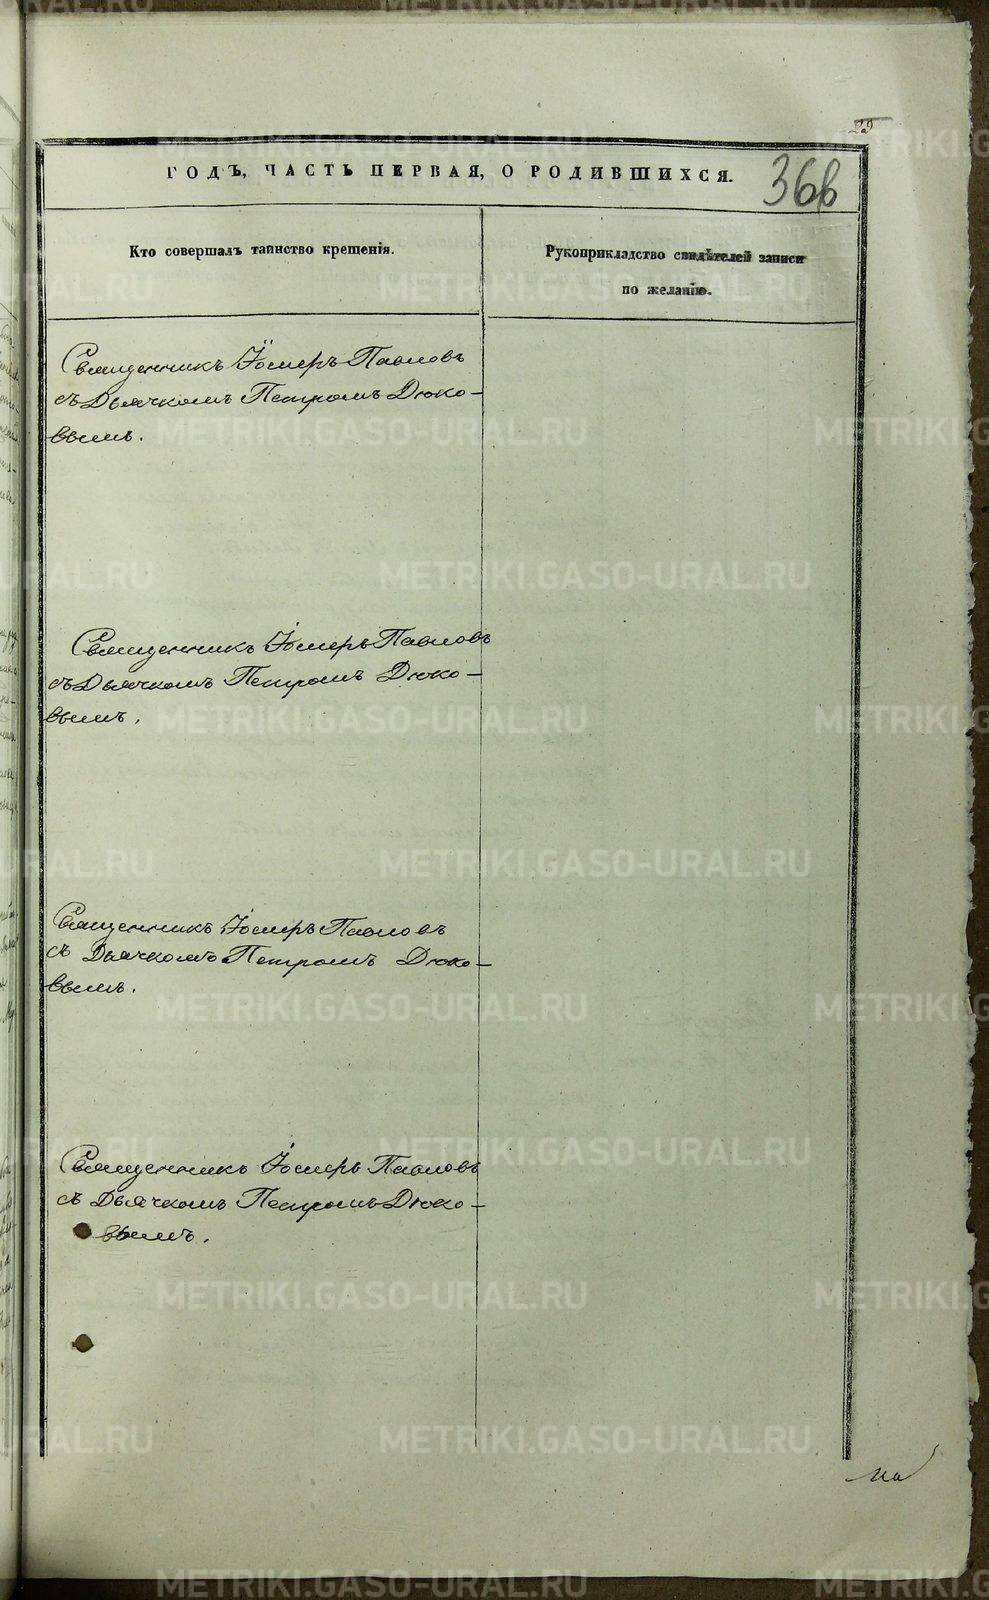 29
ГОДЪ, ЧАСТЬ ПЕРВАЯ, О РОДИВШИХСЯ.
366
Кто совершалъ таинство крещенія.
Рукоприкладство свидѣтелей записи
по желанію.
Священникъ Павловъ
съ Дьячкомъ Петромъ Дюко-
вымъ.
Священникъ Павловъ
съ Дьячкомъ Петромъ Дюко-
вымъ.
Священникъ Павловъ
съ Дьячкомъ Петромъ Дюко-
вымъ.
Священникъ Павловъ
съ Дьячкомъ Петромъ Дюко-
вымъ.
METRIKI.GASO-URAL.RU